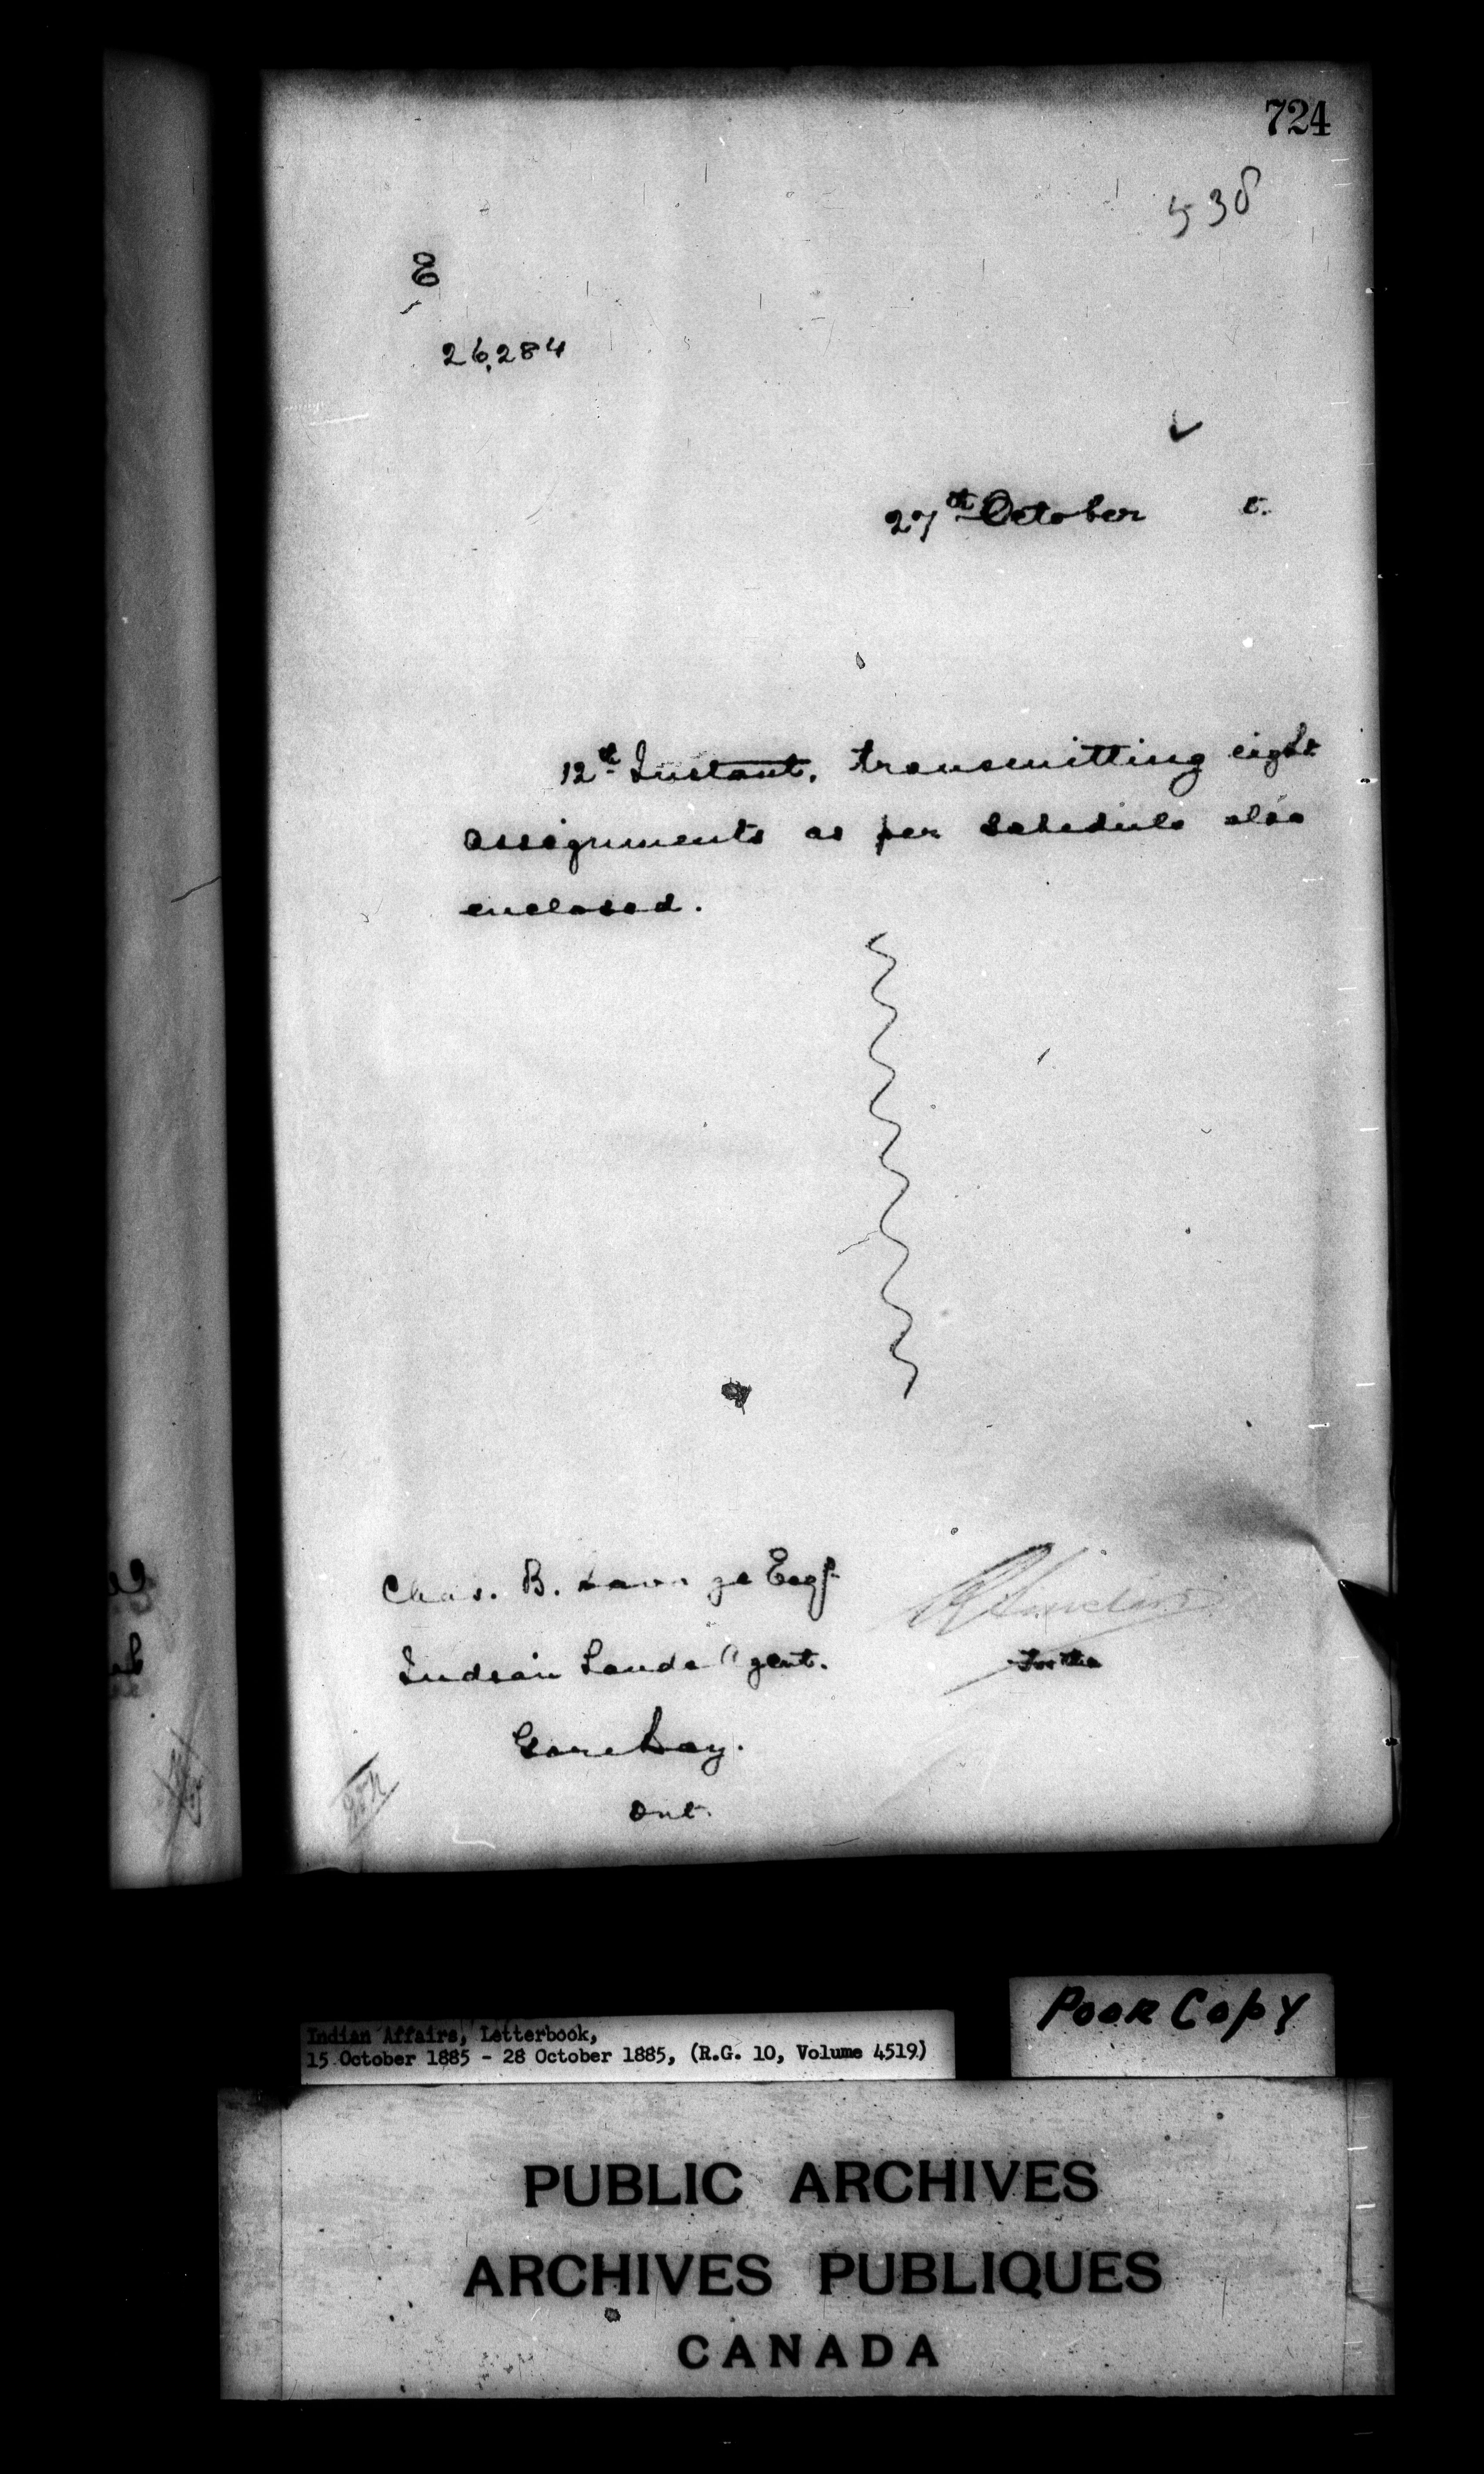 724
538
E
26,284
27th October 5.
12th Instant, transmitting eight
assignments as per schedule also
enclosed.
Chas. B. Savage Esqr
Indian Lands Agent.
Gore Bay.
Ont.
R Sinclair
For the
Indian Affairs, Letterbook,
15 October 1885 - 28 October 1885, (R.G. 10, Volume 4519)
POOR COPY
PUBLIC ARCHIVES
ARCHIVES PUBLIQUES
CANADA